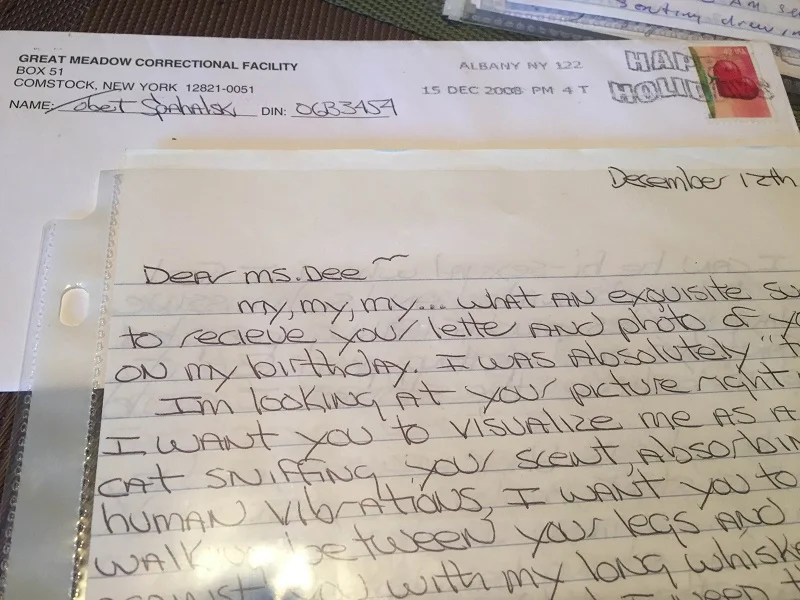 GREAT MEADOW CORRECTIONAL FACILITY
BOX 51
COMSTOCK, NEW YORK 12821-0051
NAME: Robert Spahalski DIN: 06B3454
ALBANY NY 122
15 DEC 2008 PM 4 T
HAP
HOLID
December 12th
Dear Ms. Dee
My, my, my... what an exquisite su
to recieve your lette and photo of yo
on my birthday. I was absolutely "t
Im looking at your picture right
I want you to visualize me as a
cat sniffing your scent, absorbin
human vibrations, I want you to
walk between your legs and
against you with my long whiske
I need